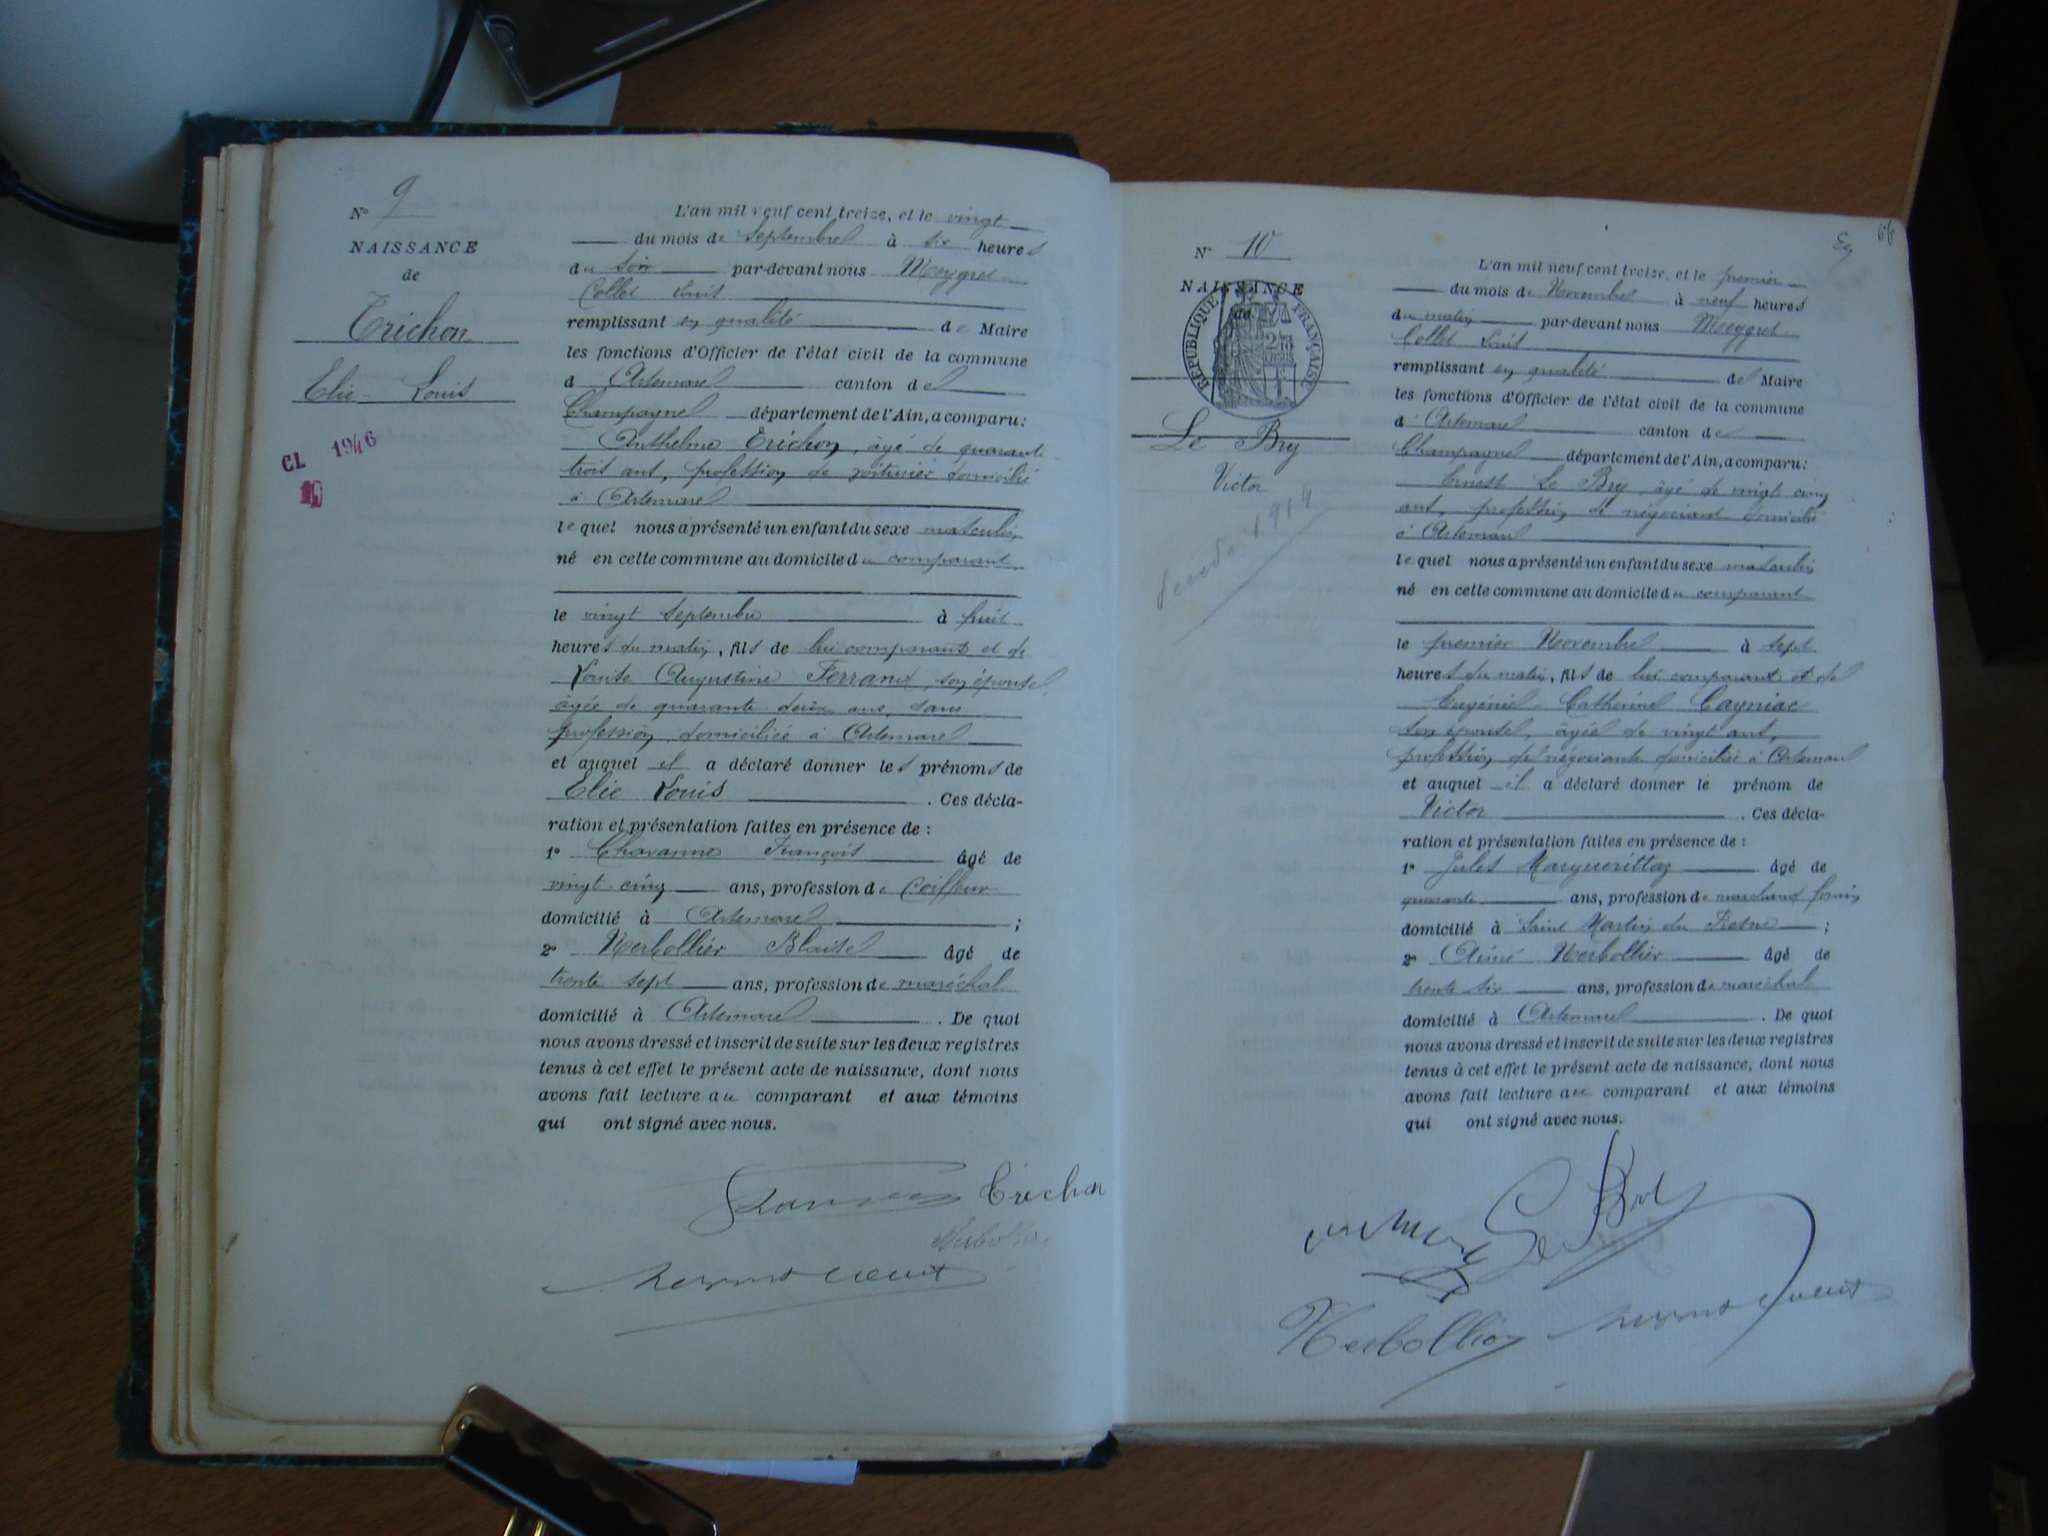 N° 9
NAISSANCE
de
Trichon
Elie Louis
CL 1946
L'an mil neuf cent treize, et le vingt
du mois de Septembre à six heures
du soir par-devant nous Meygret
Collet Louis
remplissant en qualité de Maire
les fonctions d'Officier de l'état civil de la commune
d' Artemare canton de
Champagne département de l'Ain, a comparu :
Anthelme Trichon, âgé de quarante
trois ans, profession de voiturier domicilié
à Artemare
lequel nous a présenté un enfant du sexe masculin
né en cette commune au domicile du comparant
le vingt Septembre à huit
heures du matin, fils de lui comparant et de
Louise Augustine Ferrand, son épouse,
âgée de quarante deux ans, sans
profession, domiciliée à Artemare
et auquel il a déclaré donner les prénoms de
Elie Louis . Ces décla-
ration et présentation faites en présence de :
1° Chavanne François âgé de
vingt cinq ans, profession de Coiffeur
domicilié à Artemare ;
2° Nerbollier Blaise âgé de
trente sept ans, profession de maréchal
domicilié à Artemare . De quoi
nous avons dressé et inscrit de suite sur les deux registres
tenus à cet effet le présent acte de naissance, dont nous
avons fait lecture au comparant et aux témoins
qui ont signé avec nous.
Trichon
Nerbollier
66
N° 10
NAISSANCE
de
RÉPUBLIQUE FRANÇAISE
Le Bry
Victor
1914
L'an mil neuf cent treize, et le premier
du mois de Novembre à neuf heures
du matin par-devant nous Meygret
Collet Louis
remplissant en qualité de Maire
les fonctions d'Officier de l'état civil de la commune
d' Artemare canton de
Champagne département de l'Ain, a comparu :
Ernest Le Bry, âgé de vingt cinq
ans, profession de négociant domicilié
à Artemare
lequel nous a présenté un enfant du sexe masculin
né en cette commune au domicile du comparant
le premier Novembre à sept
heures du matin, fils de lui comparant et de
Eugénie Catherine Cayniac
son épouse, âgée de vingt ans,
profession de négociante domiciliée à Artemare
et auquel il a déclaré donner le prénom de
Victor . Ces décla-
ration et présentation faites en présence de :
1° Jules Marguerittaz âgé de
quarante ans, profession de marchand forain
domicilié à Saint Martin du Fresne ;
2° Aimé Nerbollier âgé de
trente six ans, profession de maréchal
domicilié à Artemare . De quoi
nous avons dressé et inscrit de suite sur les deux registres
tenus à cet effet le présent acte de naissance, dont nous
avons fait lecture au comparant et aux témoins
qui ont signé avec nous.
Le Bry
Nerbollier